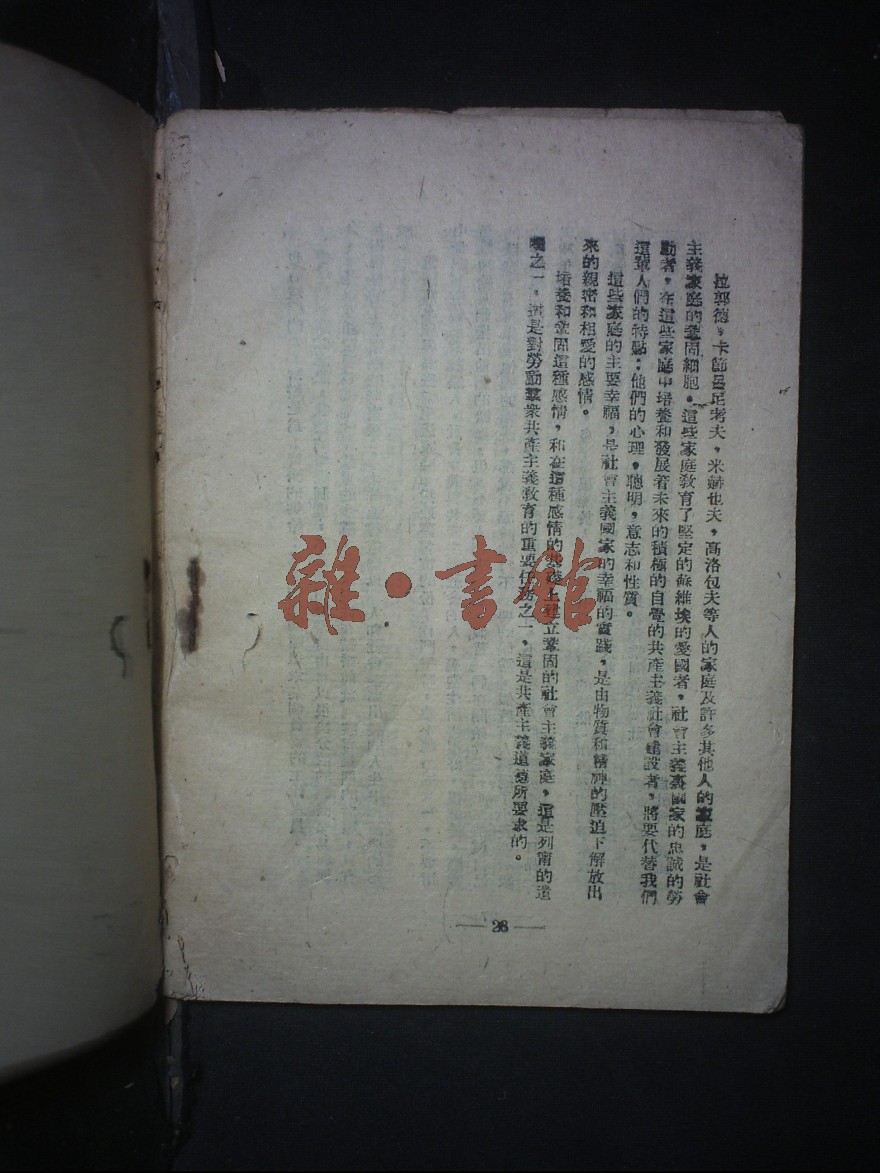 拉郭德，卡節呂足考夫，米赫也夫，高洛包夫等人的家庭及許多其他人的家庭，是社會
主義家庭的鞏固細胞。這些家庭教育了堅定的蘇維埃的愛國者，社會主義國家的忠誠的勞
動者，在這些家庭中培養和發展着未來的積極的自覺的共產主義社會建設者，將要代替我們
這輩人們的特點：他們的心理，聰明，意志和性質。
這些家庭的主要幸福，是社會主義國家的幸福的實踐，是由物質和精神的壓迫下解放出
來的親密和相愛的感情。
培養和鞏固這種感情，和在這種感情的基礎上建立鞏固的社會主義家庭，這是列甯的遺
囑之一，這是對勞動羣衆共產主義敎育的重要任務之一，這是共產主義道德所要求的。
— 28 —
雜·書館